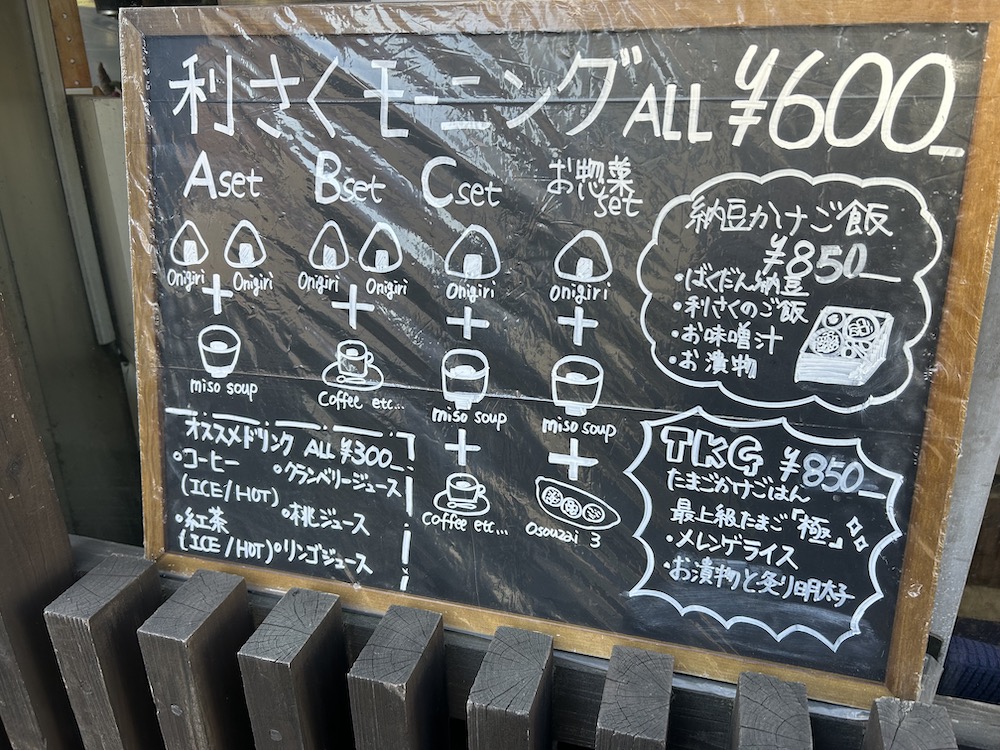 利さくモーニング ALL ¥600-
Aset
Onigiri Onigiri
+
miso soup
Bset
Onigiri Onigiri
+
Coffee etc...
Cset
Onigiri
+
miso soup
+
Coffee etc...
お惣菜
set
Onigiri
+
miso soup
+
Osouzai 3
納豆かけご飯
¥850-
・ばくだん納豆
・利さくのご飯
・お味噌汁
・お漬物
オススメドリンク ALL ¥300-
・コーヒー
(ICE/HOT)
・紅茶
(ICE/HOT)
・クランベリージュース
・桃ジュース
・リンゴジュース
TKG ¥850-
たまごかけごはん
最上級たまご「極」
・メレンゲライス
・お漬物と炙り明太子